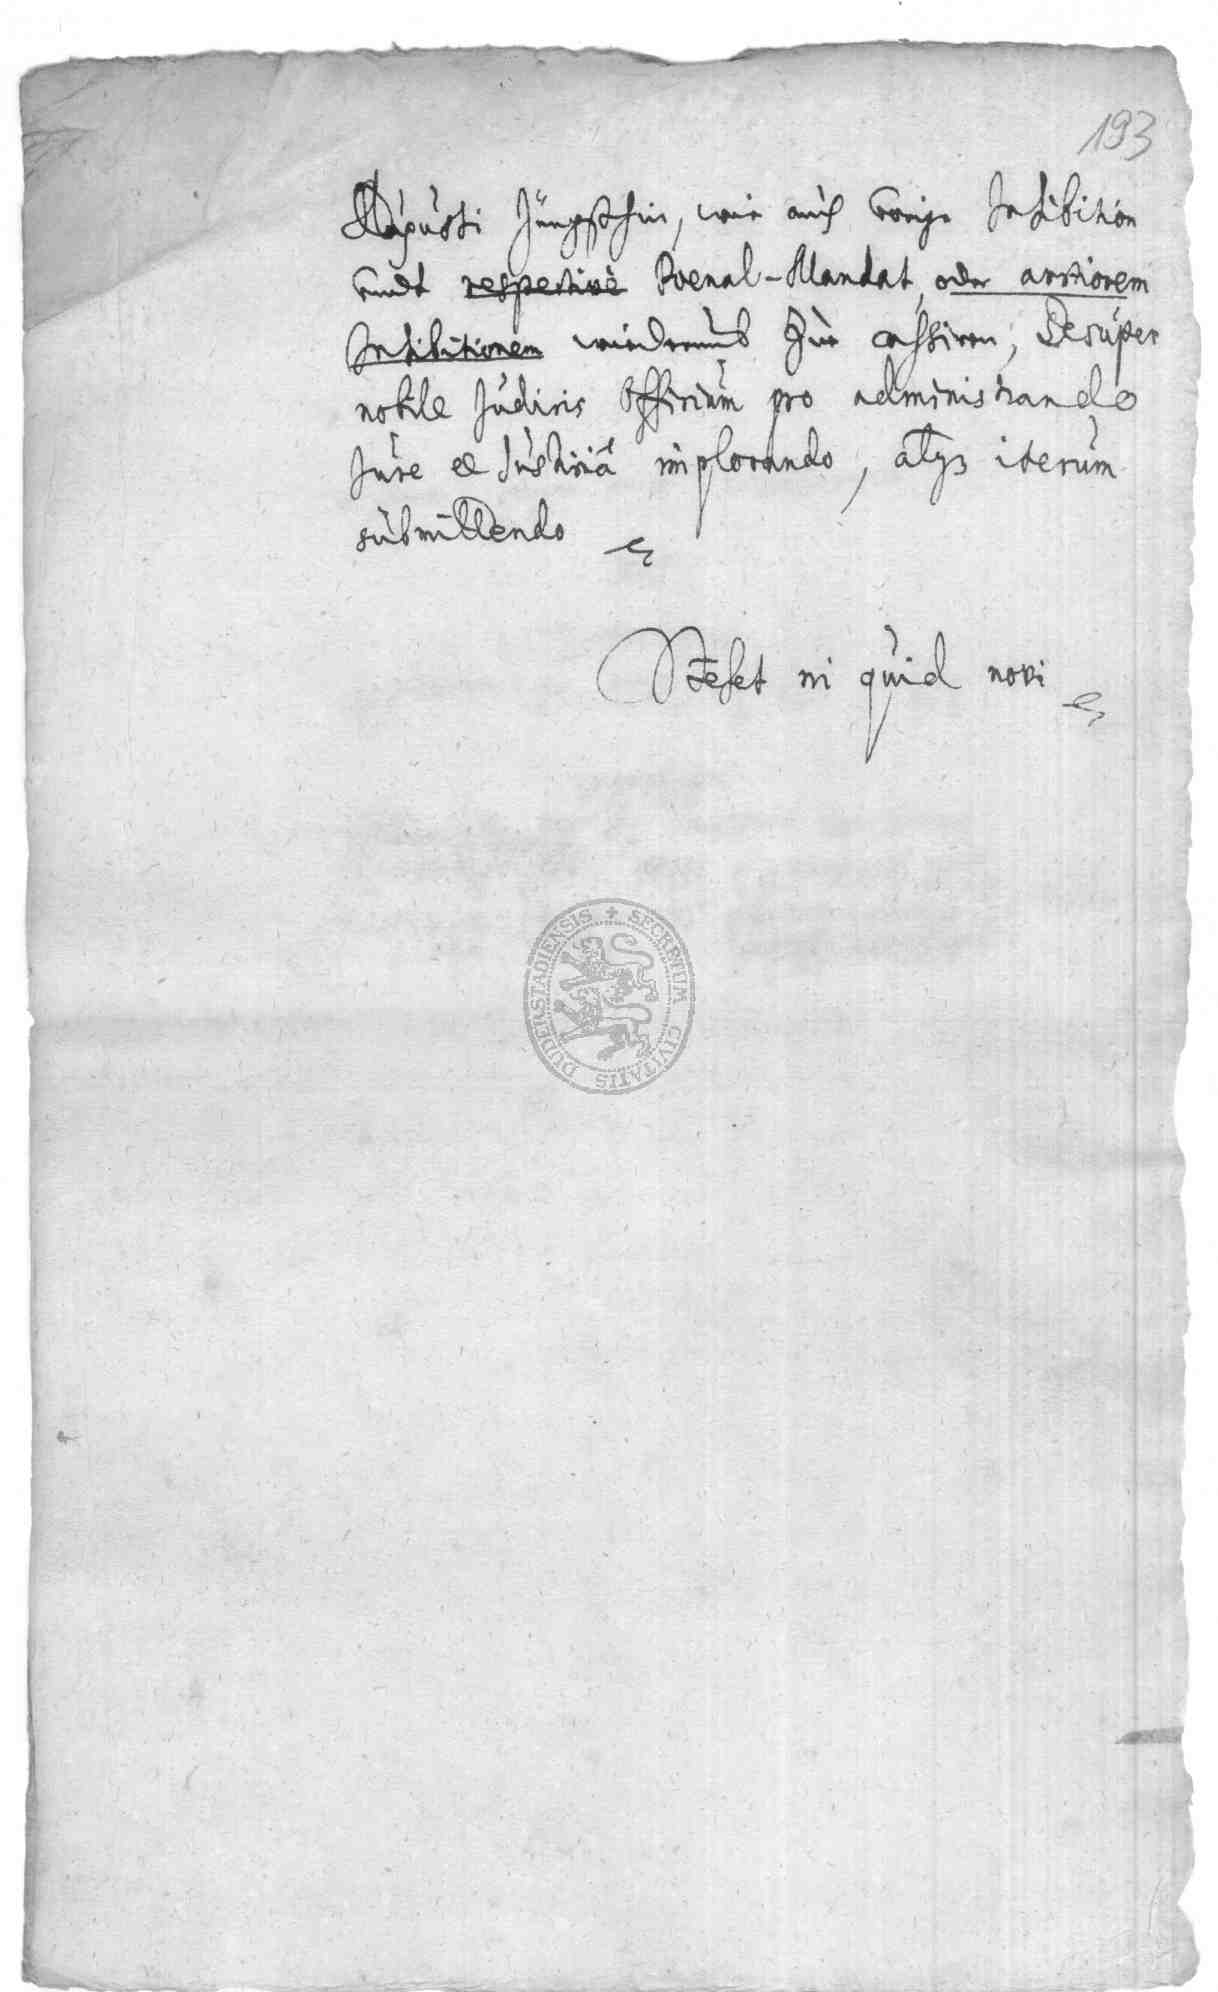 193
Augusti jüngsthin, wie auch vorige Inhibition
undt respectivè Poenal-Mandat, oder arctiorem
Inhibitionem wiederumb zue cassiren, Desuper
nobile Judicis Officium pro administrando
Jure et Justitiâ implorando, atque iterum
submittendo
Refert ni quid novi
SECRETUM CIVITATIS DUDERSTADIENSIS